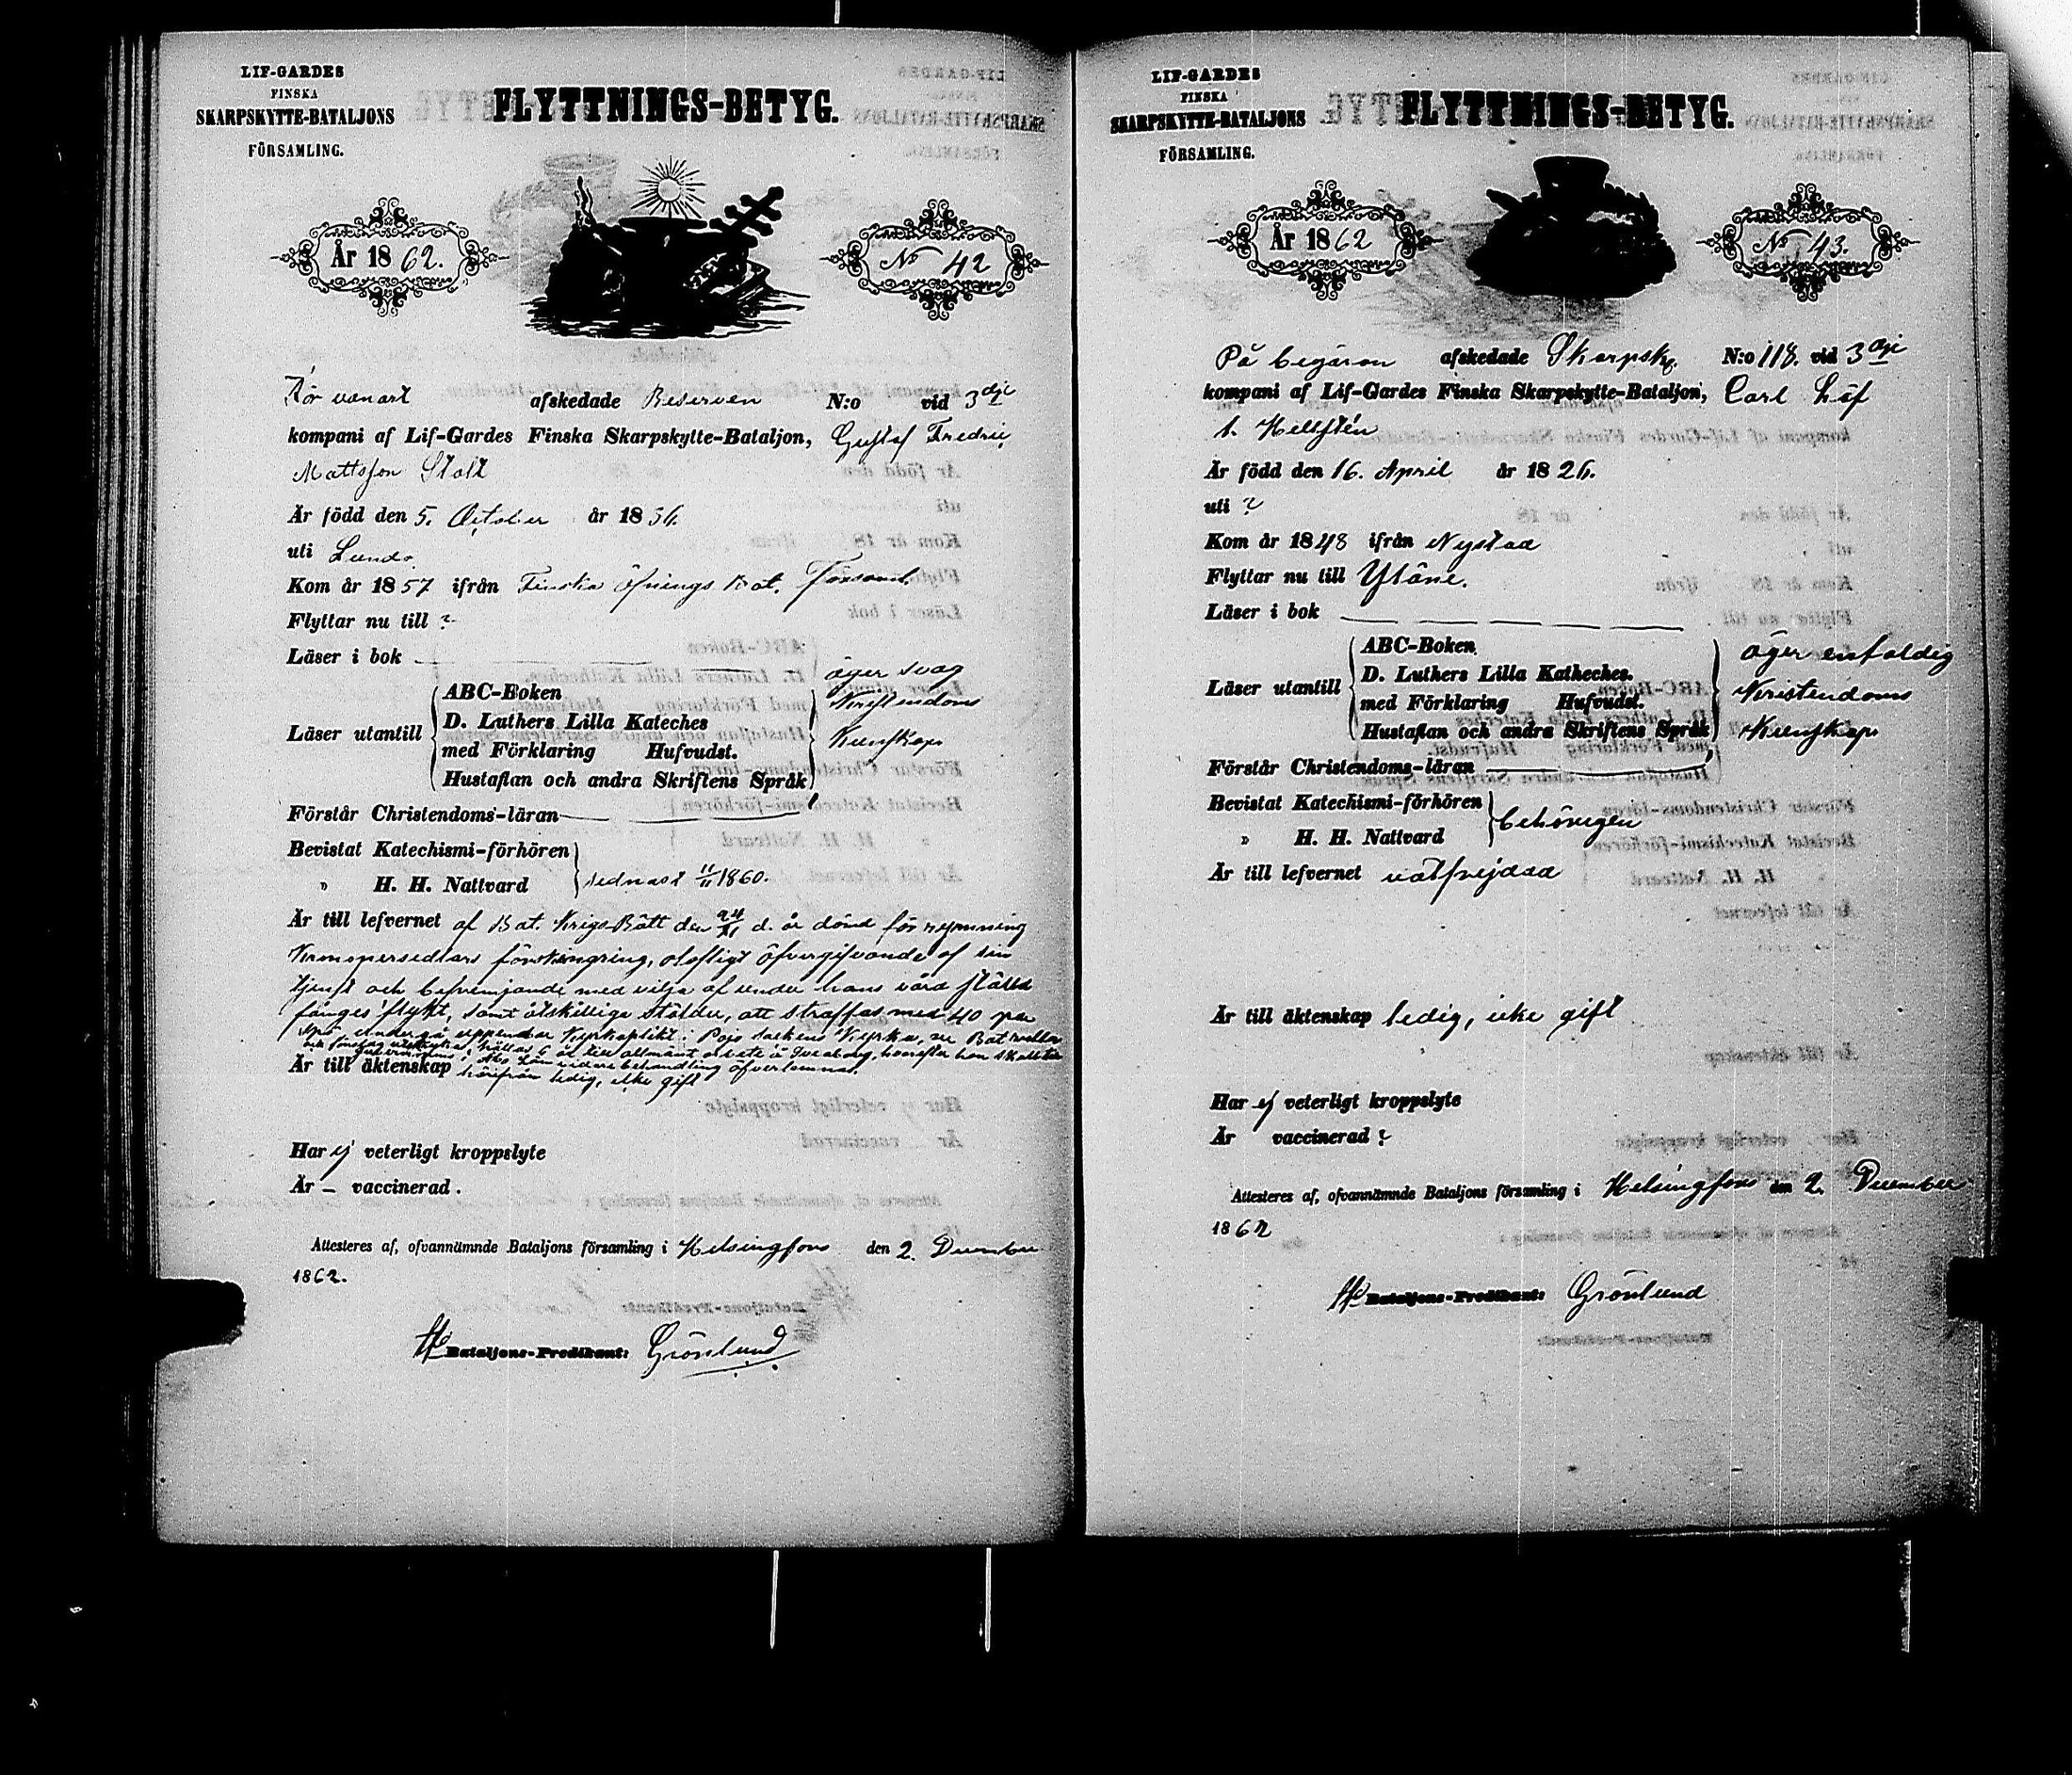 LIF-GARDES
FINSKA
SKARPSKYTTE-BATALJONS
FÖRSAMLING.
FLYTTNINGS-BETYG.
År 1862.
No 42
För vanart afskedade Reserven N:o vid 3dje
kompani af Lif-Gardes Finska Skarpskytte-Bataljon, Gustaf Fredric
Mattsson Stolt
Är född den 5. October år 1836.
uti Lundo.
Kom år 1857 ifrån Finska Öfnings Bat. Församl.
Flyttar nu till ?
Läser i bok
Läser utantill
ABC-Boken
D. Luthers Lilla Kateches
med Förklaring Hufvudst.
Hustaflan och andra Skriftens Språk
äger svag
Kristendoms
Kunskap
Förstår Christendoms-läran
Bevistat Katechismi-förhören
" H. H. Nattvard
sednast 11/11 1860.
Är till lefvernet af Bat. Krigs-Rätt den 24/XI d. år dömd för rymning
Kronopersedlars förskingring, olofligt öfvergifvande af sin
tjenst och befremjande med vilja af under hans vård ställd
fånges flykt, samt åtskillige stölder, att straffas med 40 par
spö, undergå uppenbar Kyrkoplikt i Pojo sockens Kyrka, ur Bat. rullor
hållas 6 år till allmänt arbete å Sveaborg, hvarefter han skall till
Guvernörens i Åbo Län vidare behandling öfverlemnas.
Är till äktenskap härifrån ledig, icke gift
Har ej veterligt kroppslyte
Är – vaccinerad.
Attesteres af, ofvannämnde Bataljons församling i Helsingfors den 2. December
1862.
Bataljons-Predikant: Grönlund
LIF-GARDES
FINSKA
SKARPSKYTTE-BATALJONS
FÖRSAMLING.
FLYTTNINGS-BETYG.
År 1862
No 43.
På begäran afskedade Skarpsk. N:o 118. vid 3dje
kompani af Lif-Gardes Finska Skarpskytte-Bataljon, Carl Löf
l. Hellstén
Är född den 16. April år 1826.
uti ?
Kom år 1848 ifrån Nystad
Flyttar nu till Yläne.
Läser i bok
Läser utantill
ABC-Boken
D. Luthers Lilla Katheches.
med Förklaring Hufvudst.
Hustaflan och andra Skriftens Språk
äger enfaldig
Kristendoms
Kunskap
Förstår Christendoms-läran
Bevistat Katechismi-förhören
" H. H. Nattvard
behörigen
Är till lefvernet välfrejdad
Är till äktenskap ledig, icke gift
Har ej veterligt kroppslyte
Är vaccinerad ?
Attesteres af, ofvannämnde Bataljons församling i Helsingfors den 2. December
1862
Bataljons-Predikant: Grönlund